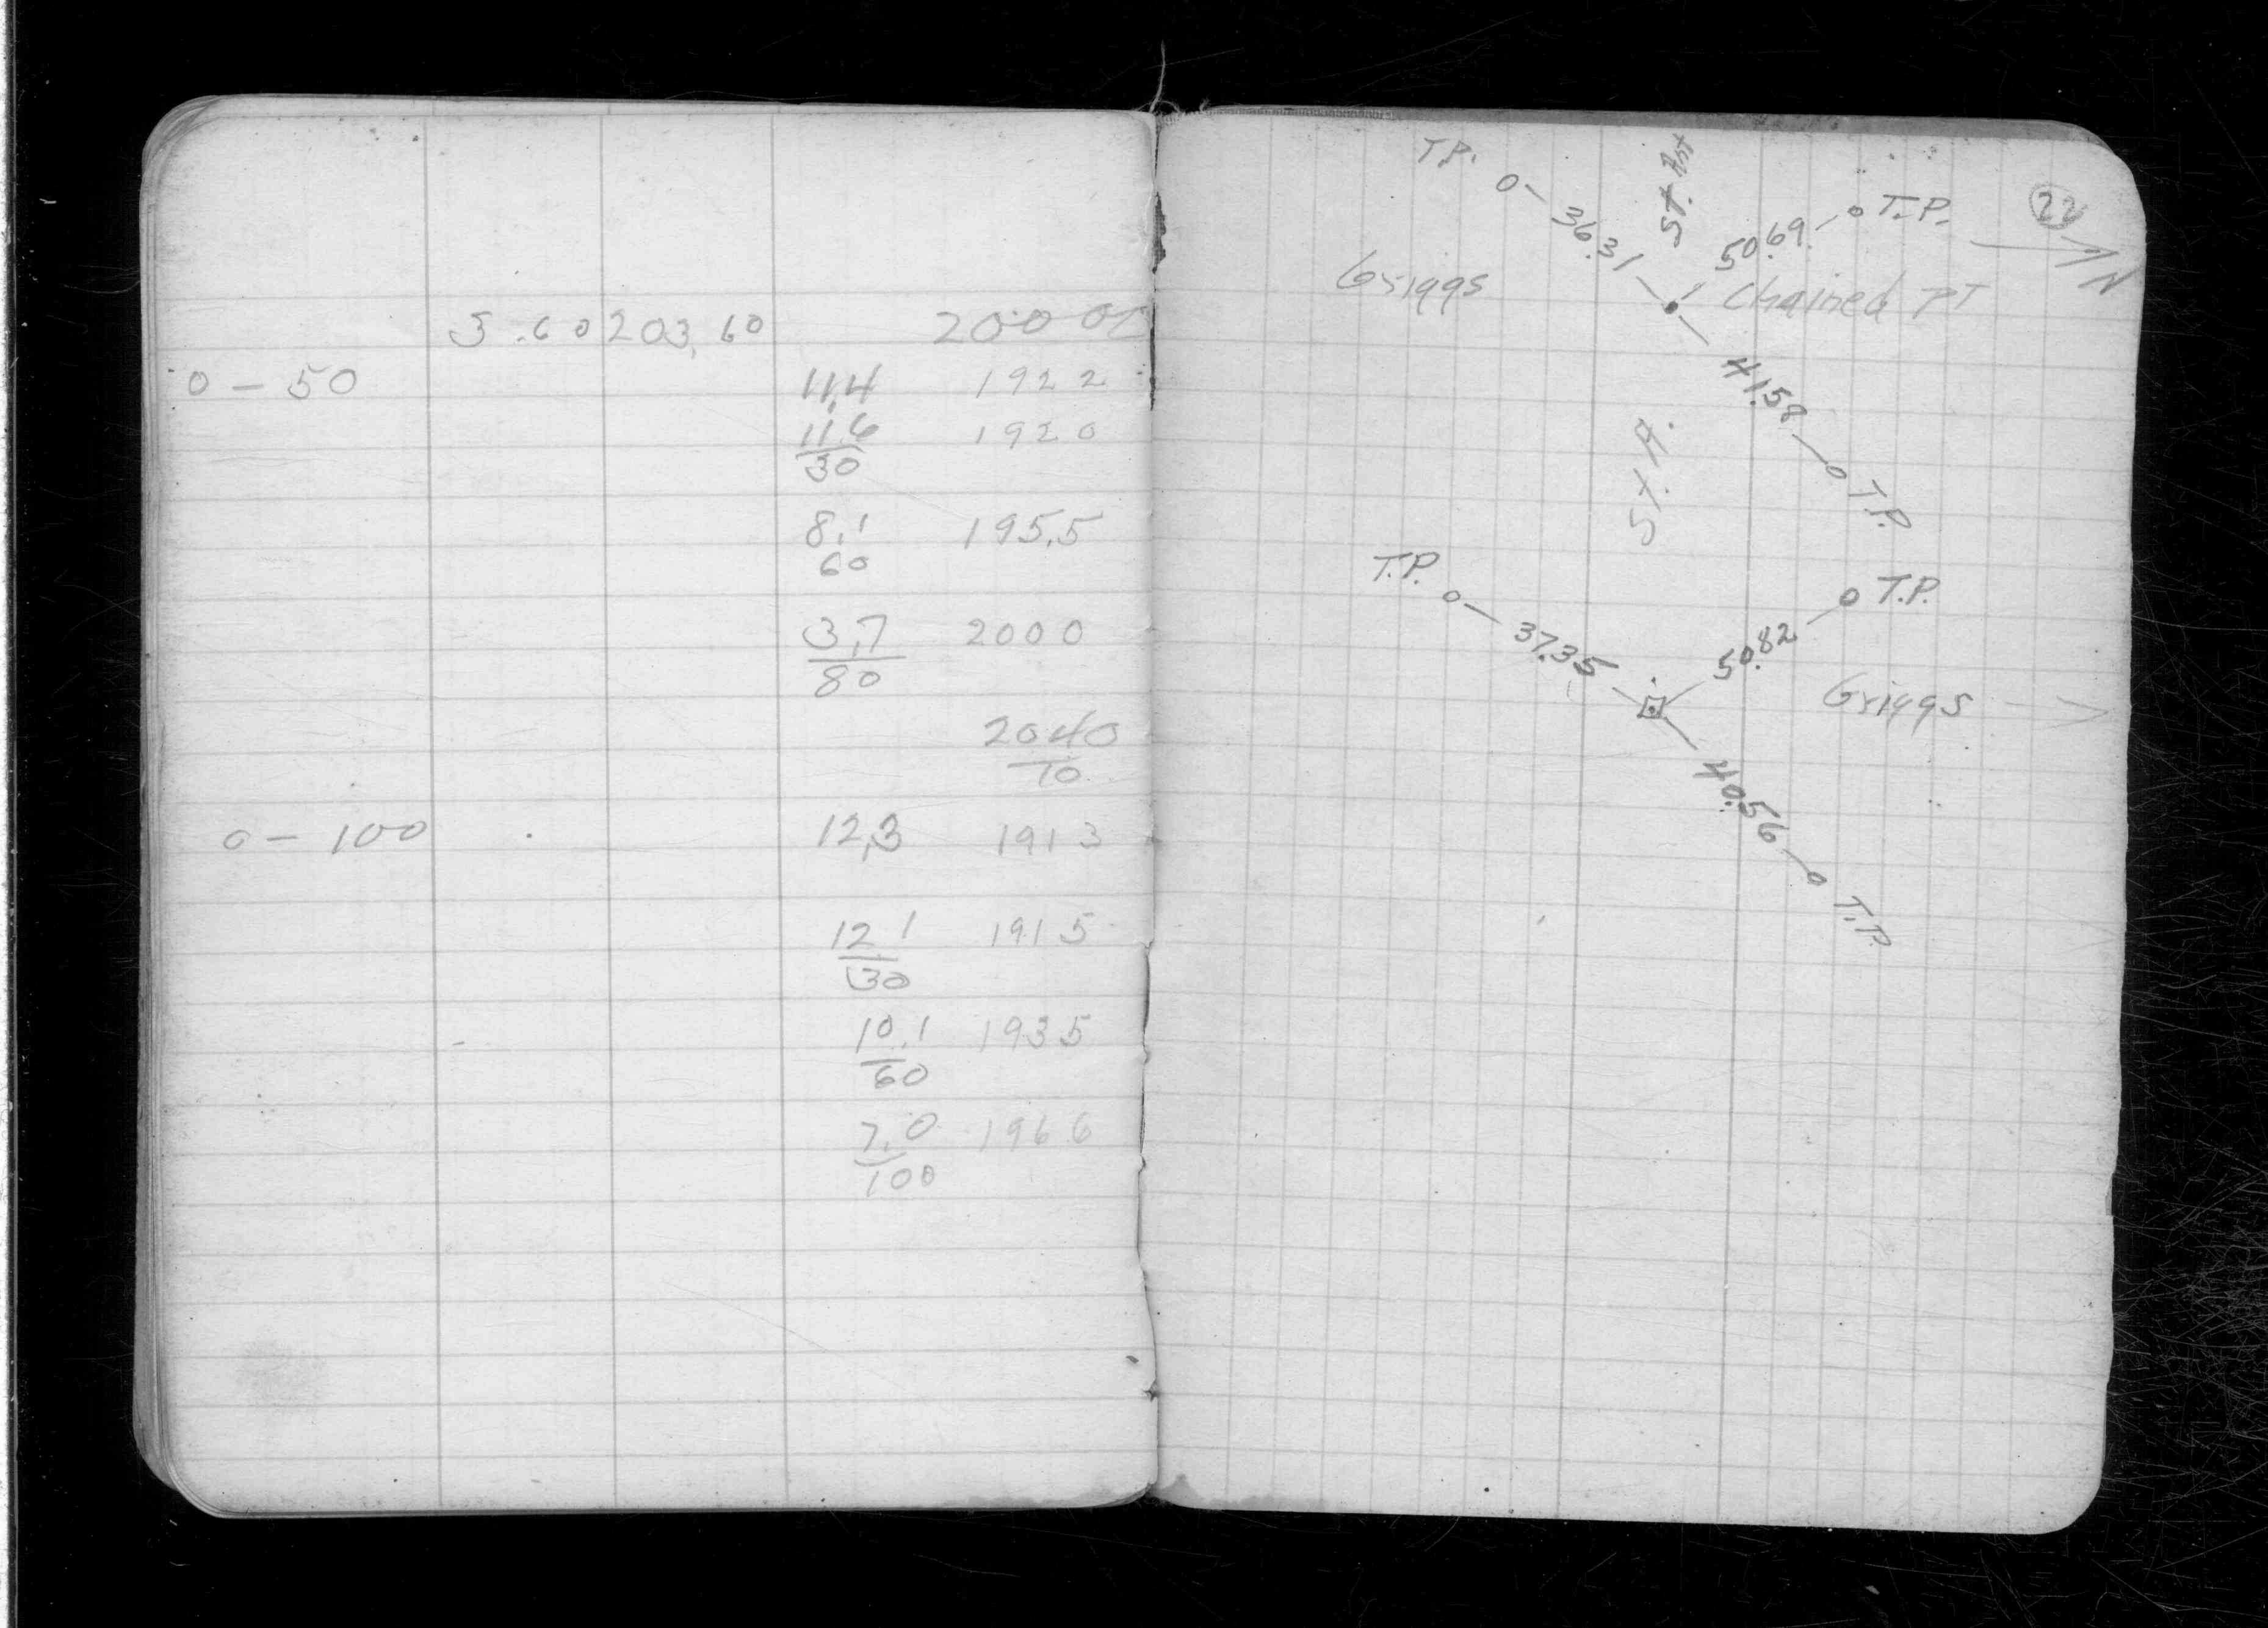 3.60 203.60 200 00
0 - 50 11.4 1922
11.6 1920
30
8.1 195.5
60
3.7 2000
80
2040
70
0 - 100 12.3 1913
12 1 1915
30
10.1 1935
60
7.0 1966
100
22
T.P.
36.31
St.
50.69
T.P.
N
Griggs
Chained PT
41.58
T.P.
St. A.
T.P.
37.35
50.82
T.P.
Griggs
40.56
T.P.